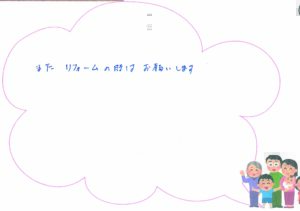 また リフォームの際は お願いします